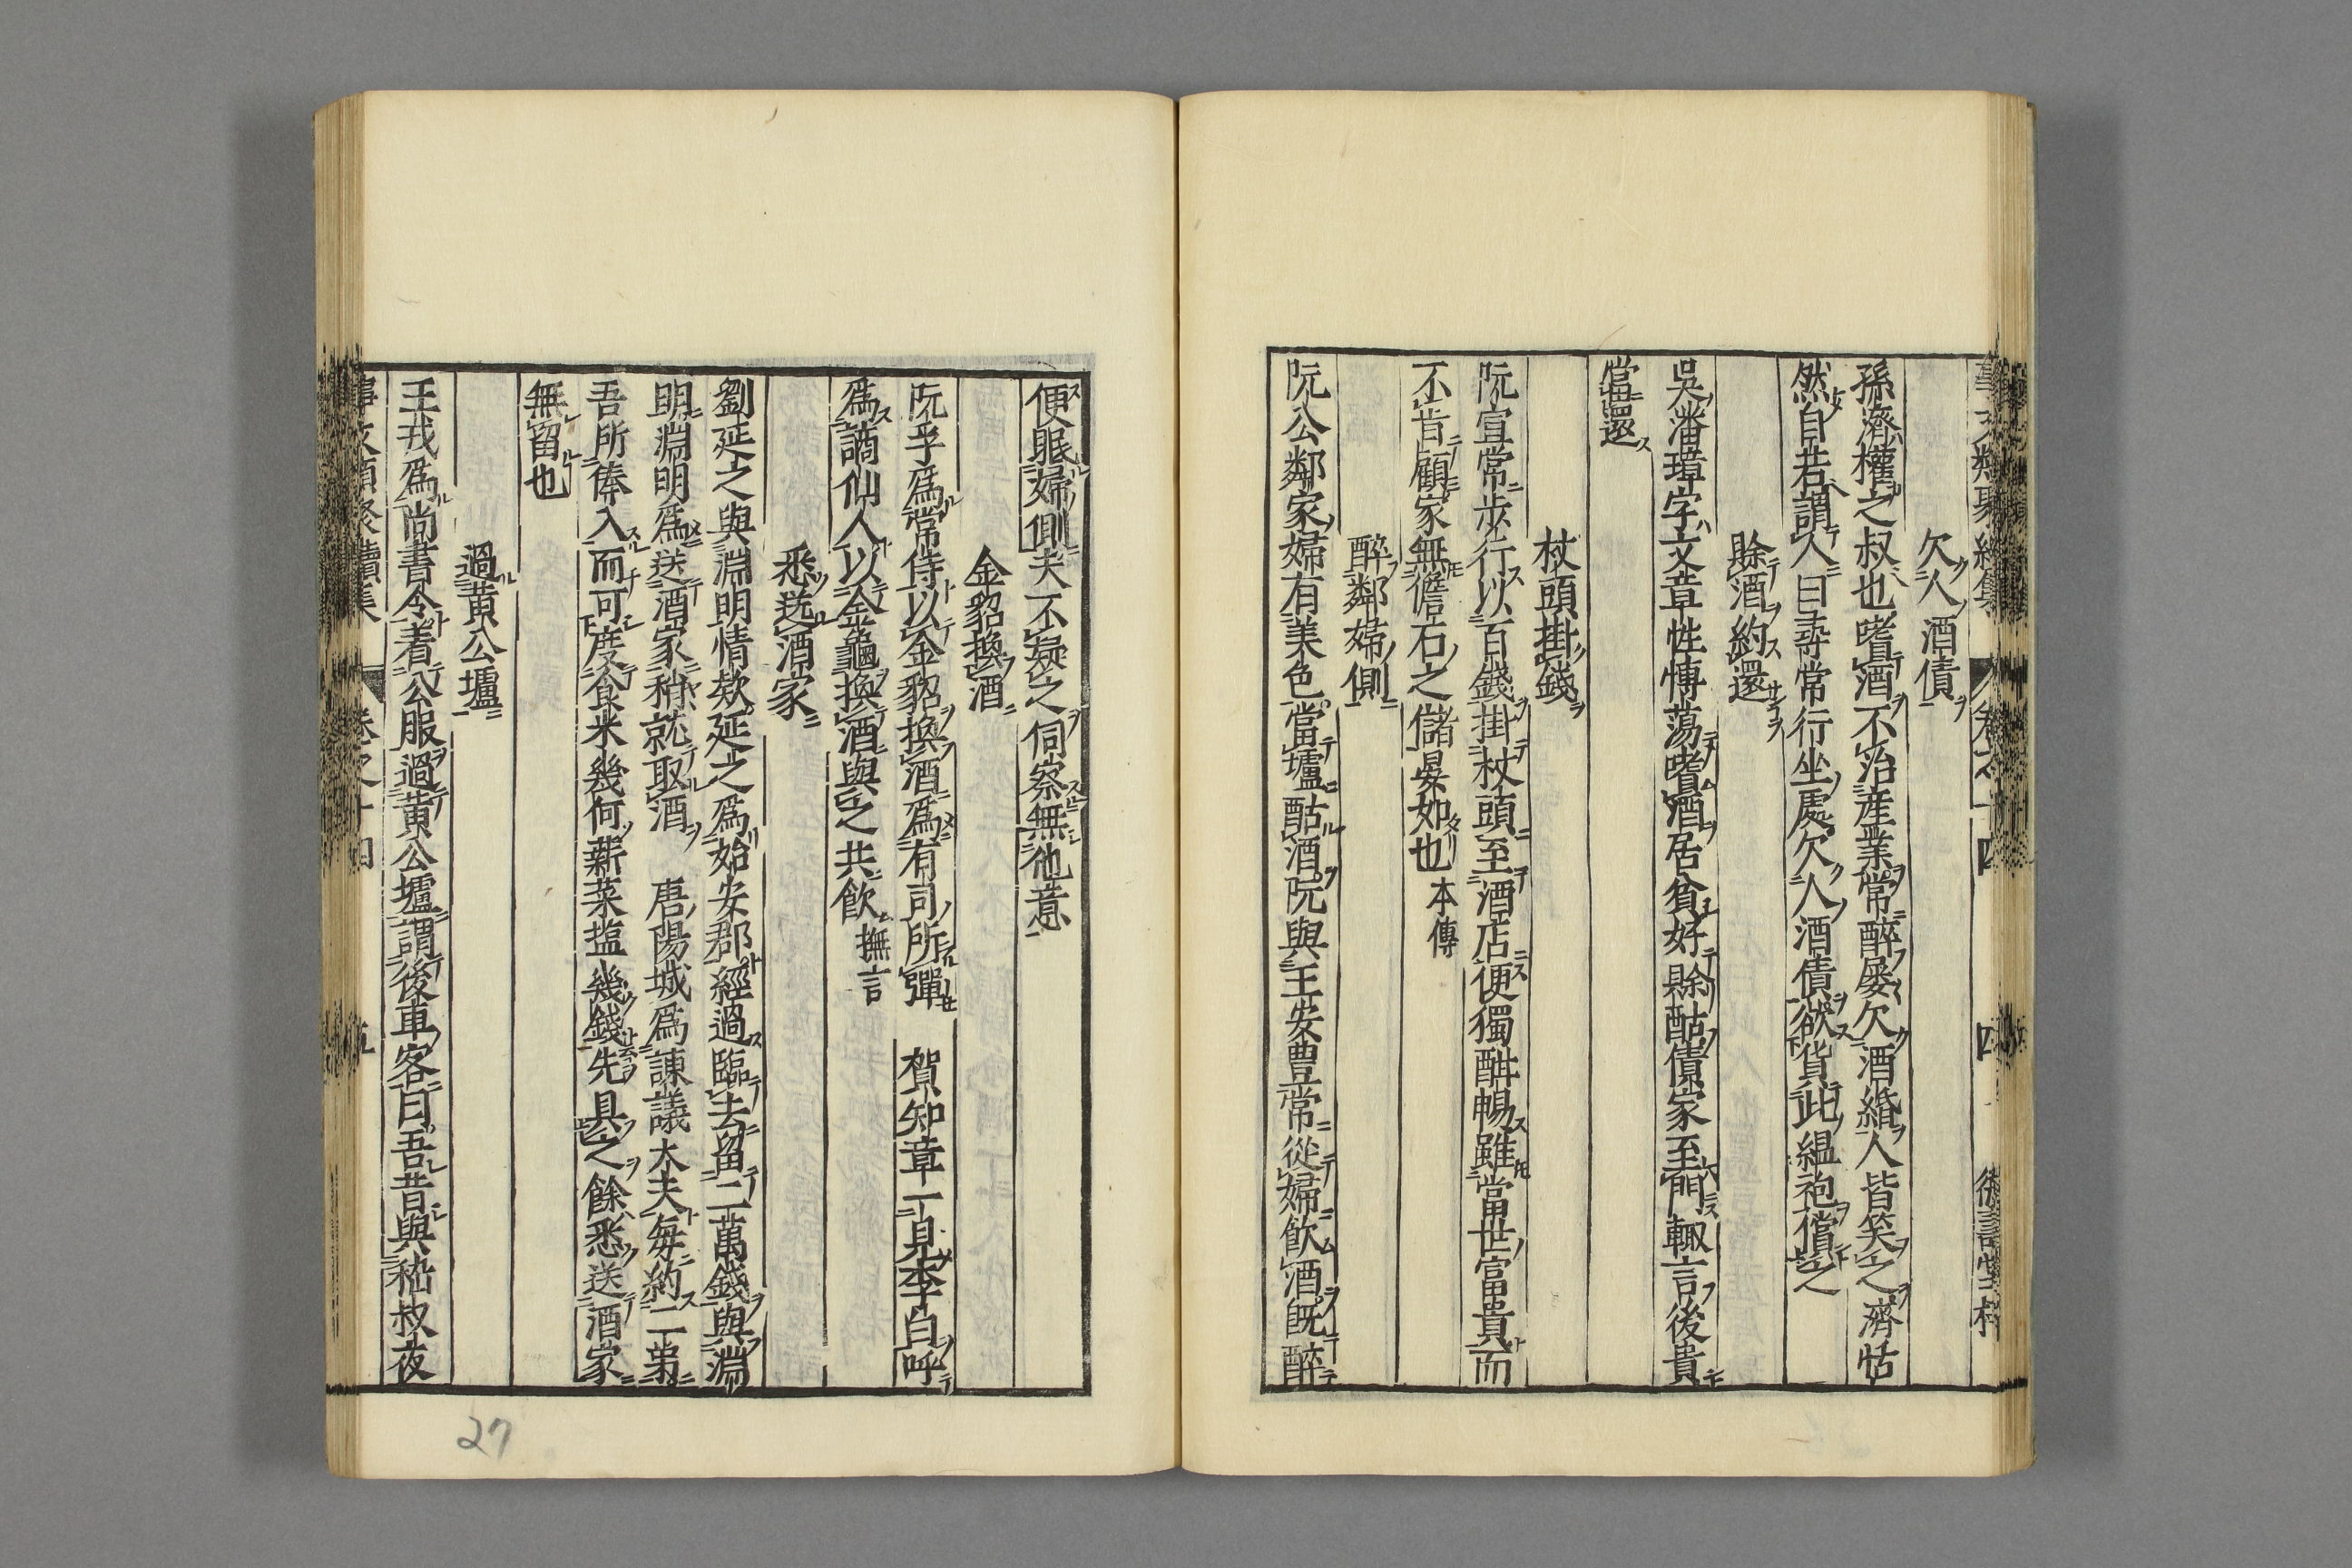 欠人酒債
孫濟權之叔也嗜酒不治産業常醉屡欠酒緡人皆笑之濟恬
然自若謂人曰尋常行坐處欠人酒債欲貨此緼袍償之
賖酒約還
吳潘璋字文章性慱蕩嗜酒居貧好賖酤債家至門輙言後貴
當還
杖頭掛錢
阮宣常步行以百錢掛杖頭至酒店便獨酣暢雖當世富貴而
不肯顧家無儋石之儲晏如也本傳
醉鄰婦側
阮公鄰家婦有美色當壚酤酒阮與王安豊常從婦飲酒旣醉
便眠婦側夫不疑之伺察無他意
金貂換酒
阮孚爲常侍以金貂換酒爲有司所彈 賀知章一見李白呼
爲謫仙人以金龜換酒與之共飲摭言
悉送酒家
劉延之與淵明情欵延之爲始安郡經過臨去留二萬錢與淵
明淵明爲送酒家稍就取酒 唐陽城爲諫議大夫每約二弟
吾所俸入而可度食米幾何薪菜塩幾錢先具之餘悉送酒家
無留也
過黃公壚
王戎爲尚書令着公服過黃公壚謂後車客曰吾昔與嵇叔夜
事文類聚續集 卷之十四 五
27